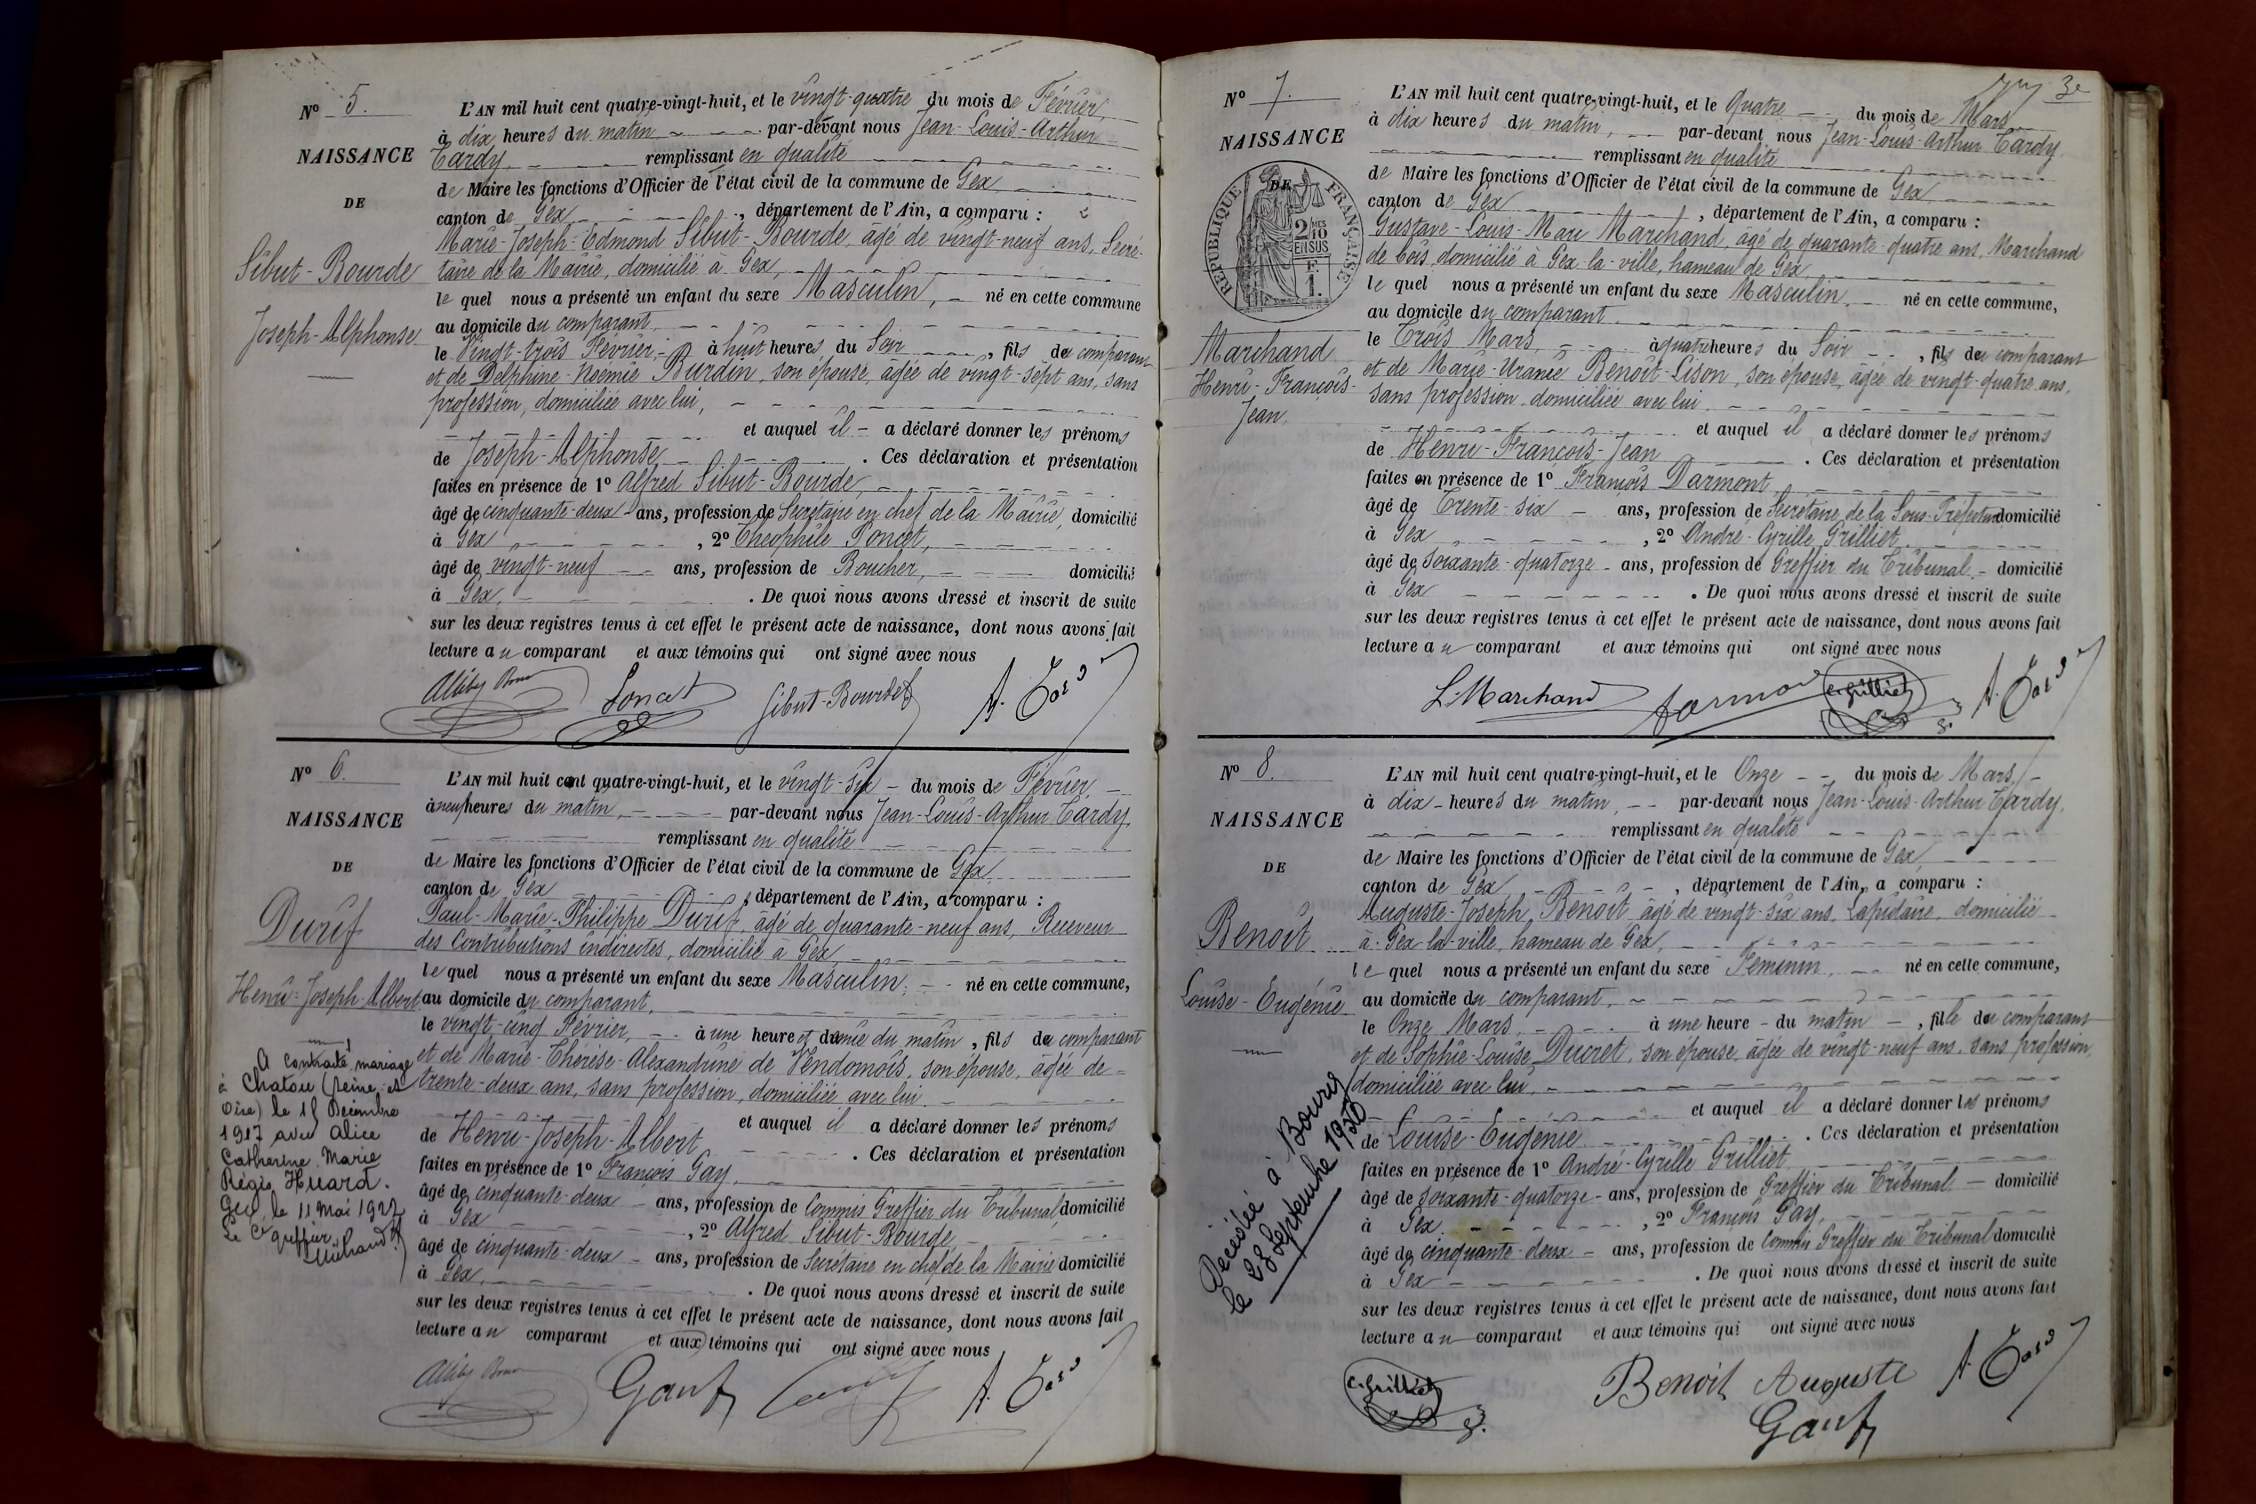 N° 5.
NAISSANCE
DE
Sibut-Bourde
Joseph-Alphonse
L'AN mil huit cent quatre-vingt-huit, et le vingt-quatre du mois de Février,
à dix heures du matin par-devant nous Jean-Louis-Arthur
Tardy, remplissant en qualité
de Maire les fonctions d'Officier de l'état civil de la commune de Gex,
canton de Gex, département de l'Ain, a comparu :
Marie-Joseph-Edmond Sibut-Bourde, âgé de vingt-neuf ans, Secré-
taire de la Mairie, domicilié à Gex,
le quel nous a présenté un enfant du sexe Masculin, né en cette commune
au domicile du comparant,
le Vingt-trois Février, à huit heures du Soir, fils du comparant
et de Delphine-Noémie Burdin, son épouse, âgée de vingt-sept ans, sans
profession, domiciliée avec lui,
et auquel il a déclaré donner les prénoms
de Joseph-Alphonse. Ces déclaration et présentation
faites en présence de 1° Alfred Sibut-Bourde,
âgé de cinquante-deux ans, profession de Secrétaire en chef de la Mairie, domicilié
à Gex, 2° Théophile Poncet,
âgé de vingt-neuf ans, profession de Boucher, domicilié
à Gex. De quoi nous avons dressé et inscrit de suite
sur les deux registres tenus à cet effet le présent acte de naissance, dont nous avons fait
lecture au comparant et aux témoins qui ont signé avec nous
Poncet Sibut-Bourde A. Tardy
N° 6.
NAISSANCE
DE
Durif
Henri-Joseph-Albert
A contracté mariage
à Chatou (Seine et
Oise) le 18 Décembre
1917 avec Alice
Catherine Marie
Régis Huard.
Gex, le 11 Mai 1927
Le Cis greffier,
L'AN mil huit cent quatre-vingt-huit, et le vingt-six du mois de Février
à neuf heures du matin, par-devant nous Jean-Louis-Arthur Tardy,
remplissant en qualité
de Maire les fonctions d'Officier de l'état civil de la commune de Gex,
canton de Gex, département de l'Ain, a comparu :
Paul-Marie-Philippe Durif, âgé de quarante-neuf ans, Receveur
des Contributions indirectes, domicilié à Gex,
le quel nous a présenté un enfant du sexe Masculin, né en cette commune,
au domicile du comparant,
le vingt-cinq Février, à une heure et demie du matin, fils du comparant
et de Marie-Thérèse-Alexandrine de Vendomois, son épouse, âgée de
trente-deux ans, sans profession, domiciliée avec lui.
et auquel il a déclaré donner les prénoms
de Henri-Joseph-Albert. Ces déclaration et présentation
faites en présence de 1° François Gay,
âgé de cinquante-deux ans, profession de Commis Greffier du Tribunal domicilié
à Gex, 2° Alfred Sibut-Bourde
âgé de cinquante-deux ans, profession de Secrétaire en chef de la Mairie domicilié
à Gex. De quoi nous avons dressé et inscrit de suite
sur les deux registres tenus à cet effet le présent acte de naissance, dont nous avons fait
lecture au comparant et aux témoins qui ont signé avec nous
Gay A. Tardy
3e
N° 7.
NAISSANCE
DE
RÉPUBLIQUE FRANÇAISE
2/10 EN SUS
F. 1.
Marchand
Henri-François-
Jean
L'AN mil huit cent quatre-vingt-huit, et le Quatre du mois de Mars
à dix heures du matin, par-devant nous Jean-Louis-Arthur Tardy,
remplissant en qualité
de Maire les fonctions d'Officier de l'état civil de la commune de Gex
canton de Gex, département de l'Ain, a comparu :
Gustave-Louis-Marie Marchand, âgé de quarante-quatre ans, Marchand
de bois, domicilié à Gex-la-ville, hameau de Gex,
le quel nous a présenté un enfant du sexe Masculin, né en cette commune,
au domicile du comparant.
le Trois Mars, à quatre heures du Soir, fils du comparant
et de Marie-Uranie Benoît-Lison, son épouse, âgée de vingt-quatre ans,
sans profession, domiciliée avec lui.
et auquel il a déclaré donner les prénoms
de Henri-François-Jean. Ces déclaration et présentation
faites en présence de 1° François Darmont
âgé de Trente-six ans, profession de Secrétaire de la Sous-Préfecture domicilié
à Gex, 2° André-Cyrille Grilliet
âgé de soixante-quatorze ans, profession de Greffier du Tribunal domicilié
à Gex. De quoi nous avons dressé et inscrit de suite
sur les deux registres tenus à cet effet le présent acte de naissance, dont nous avons fait
lecture au comparant et aux témoins qui ont signé avec nous
L. Marchand Darmont C. Grilliet A. Tardy
N° 8.
NAISSANCE
DE
Benoît
Louise-Eugénie
Décédée à Bourg
le 28 Septembre 1950
L'AN mil huit cent quatre-vingt-huit, et le Onze du mois de Mars
à dix heures du matin, par-devant nous Jean-Louis-Arthur Tardy,
remplissant en qualité
de Maire les fonctions d'Officier de l'état civil de la commune de Gex,
canton de Gex, département de l'Ain, a comparu :
Auguste-Joseph Benoît, âgé de vingt-six ans, Lapidaire, domicilié
à Gex-la-ville, hameau de Gex,
le quel nous a présenté un enfant du sexe Féminin, né en cette commune,
au domicile du comparant,
le Onze Mars, à une heure du matin, fille du comparant
et de Sophie-Louise Ducret, son épouse, âgée de vingt-neuf ans, sans profession,
domiciliée avec lui,
et auquel il a déclaré donner les prénoms
de Louise-Eugénie. Ces déclaration et présentation
faites en présence de 1° André-Cyrille Grilliet,
âgé de soixante-quatorze ans, profession de Greffier du Tribunal domicilié
à Gex, 2° François Gay,
âgé de cinquante-deux ans, profession de Commis Greffier du Tribunal domicilié
à Gex. De quoi nous avons dressé et inscrit de suite
sur les deux registres tenus à cet effet le présent acte de naissance, dont nous avons fait
lecture au comparant et aux témoins qui ont signé avec nous
C. Grilliet Benoit Auguste A. Tardy
Gay